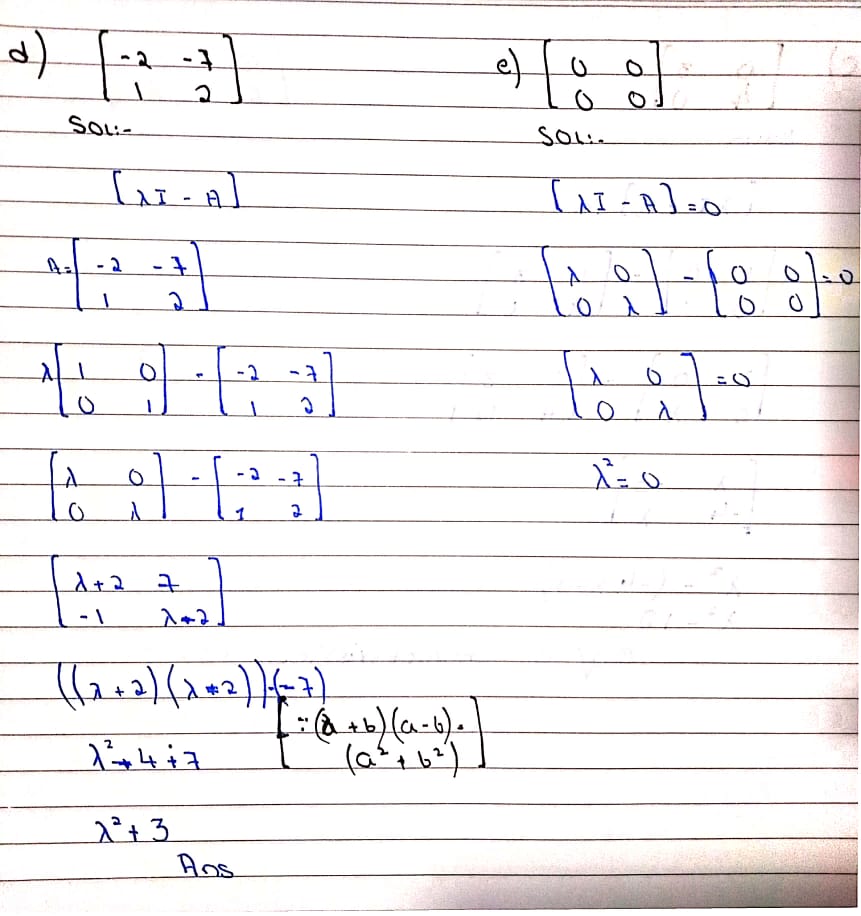 d) [-2 -7
1 2]
SOL:-
[λI - A]
A= [-2 -7
1 2]
λ[1 0
0 1] - [-2 -7
1 2]
[λ 0
0 λ] - [-2 -7
1 2]
[λ+2 7
-1 λ-2]
((λ+2)(λ-2))-(-7)
[∵(a+b)(a-b)=
(a²+b²)]
λ²-4+7
λ²+3
Ans
e) [0 0
0 0]
SOL:-
[λI - A]=0
[λ 0
0 λ] - [0 0
0 0]=0
[λ 0
0 λ]=0
λ²=0